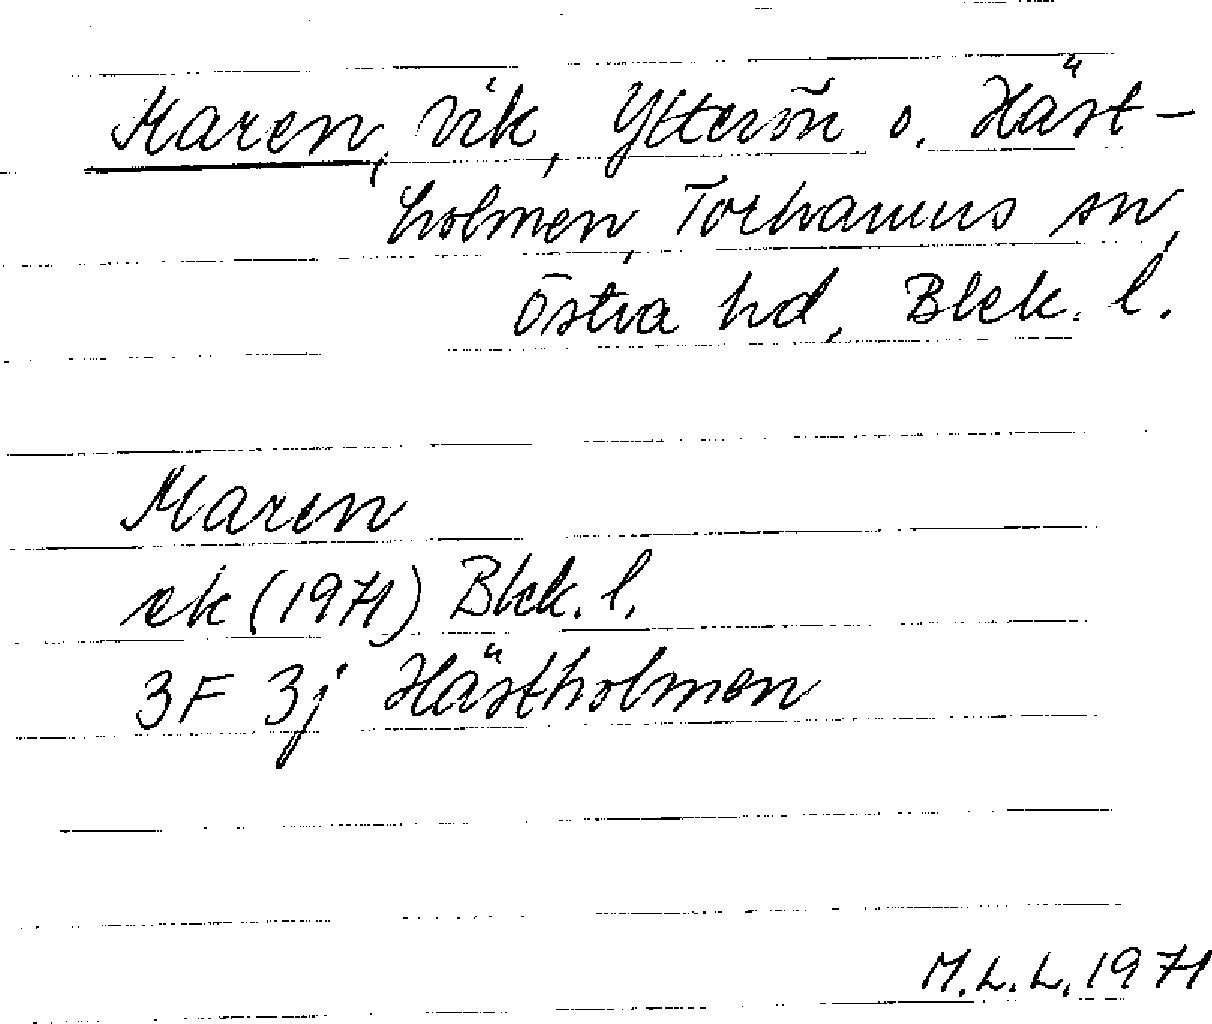 Maren, vik, Ytterön o. Häst-
holmen, Torhamns sn,
Östra hd, Blek. l.
Maren
ek (1971) Blek. l.
3F 3j Hästholmen
M.L.L. 1971